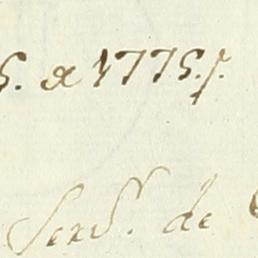 S. a 1775.
Serv.º de